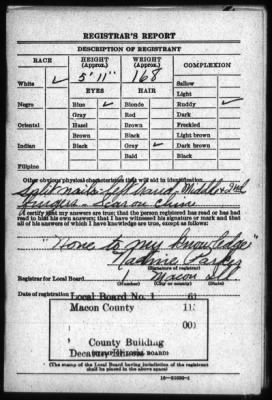 REGISTRAR'S REPORT
DESCRIPTION OF REGISTRANT
RACE HEIGHT (Approx.) WEIGHT (Approx.) COMPLEXION
5' 11" 168
White ✓ Sallow
EYES HAIR Light
Negro Blue ✓ Blonde Ruddy ✓
Gray Red Dark
Oriental Hazel Brown Freckled
Brown Black Light brown
Indian Black Gray ✓ Dark brown
Bald Black
Filipino
Other obvious physical characteristics that will aid in identification
Split nails left hand, Middle & 3rd
fingers - Scar on Chin
I certify that my answers are true; that the person registered has read or has had
read to him his own answers; that I have witnessed his signature or mark and that
all of his answers of which I have knowledge are true, except as follows:
"None to my knowledge"
(Signature of registrar)
Registrar for Local Board 1 Macon Ill.
(Number) (City or county) (State)
Date of registration
Local Board No. 1 61
Macon County 11
00
County Building
Decatur, Illinois
(The stamp of the Local Board having jurisdiction of the registrant
shall be placed in the above space)